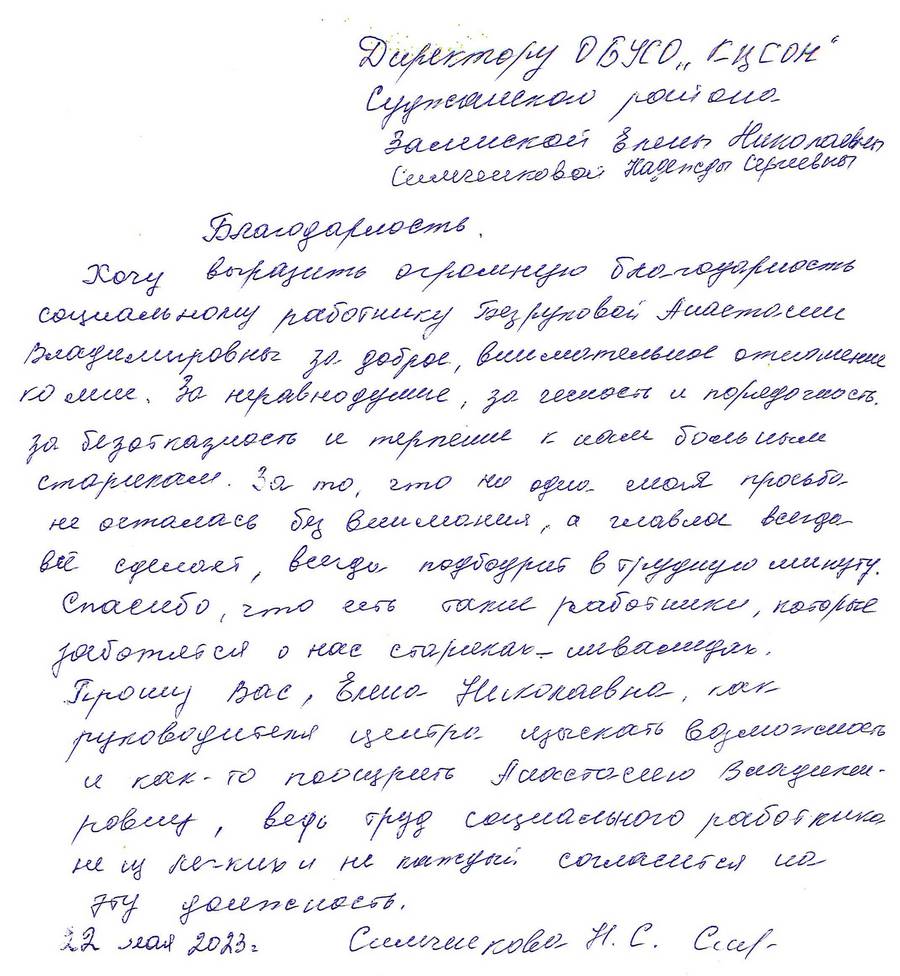 Директору ОБУСО „КЦСОН“
Суджанского района
Залинской Елены Николаевны
Симченковой Надежды Сергиевны
Благодарность.
Хочу выразить огромную благодарность
социальному работнику Безруковой Анастасии
Владимировны за доброе, внимательное отношение
ко мне. За неравнодушие, за чесность и порядочность.
за безотказность и терпение к нам больным
старикам. За то, что ни одна моя просьба
не осталась без внимания, а главное всегда
всё сделает, всегда подбодрит в трудную минуту.
Спасибо, что есть такие работники, которые
заботятся о нас стариках-инвалидах.
Прошу Вас, Елена Николаевна, как
руководителя центра изыскать возможность
и как-то поощрить Анастасию Владими-
ровну, ведь труд социального работника
не из легких и не каждый согласится на
эту должность.
22 мая 2023г Симченкова Н. С.